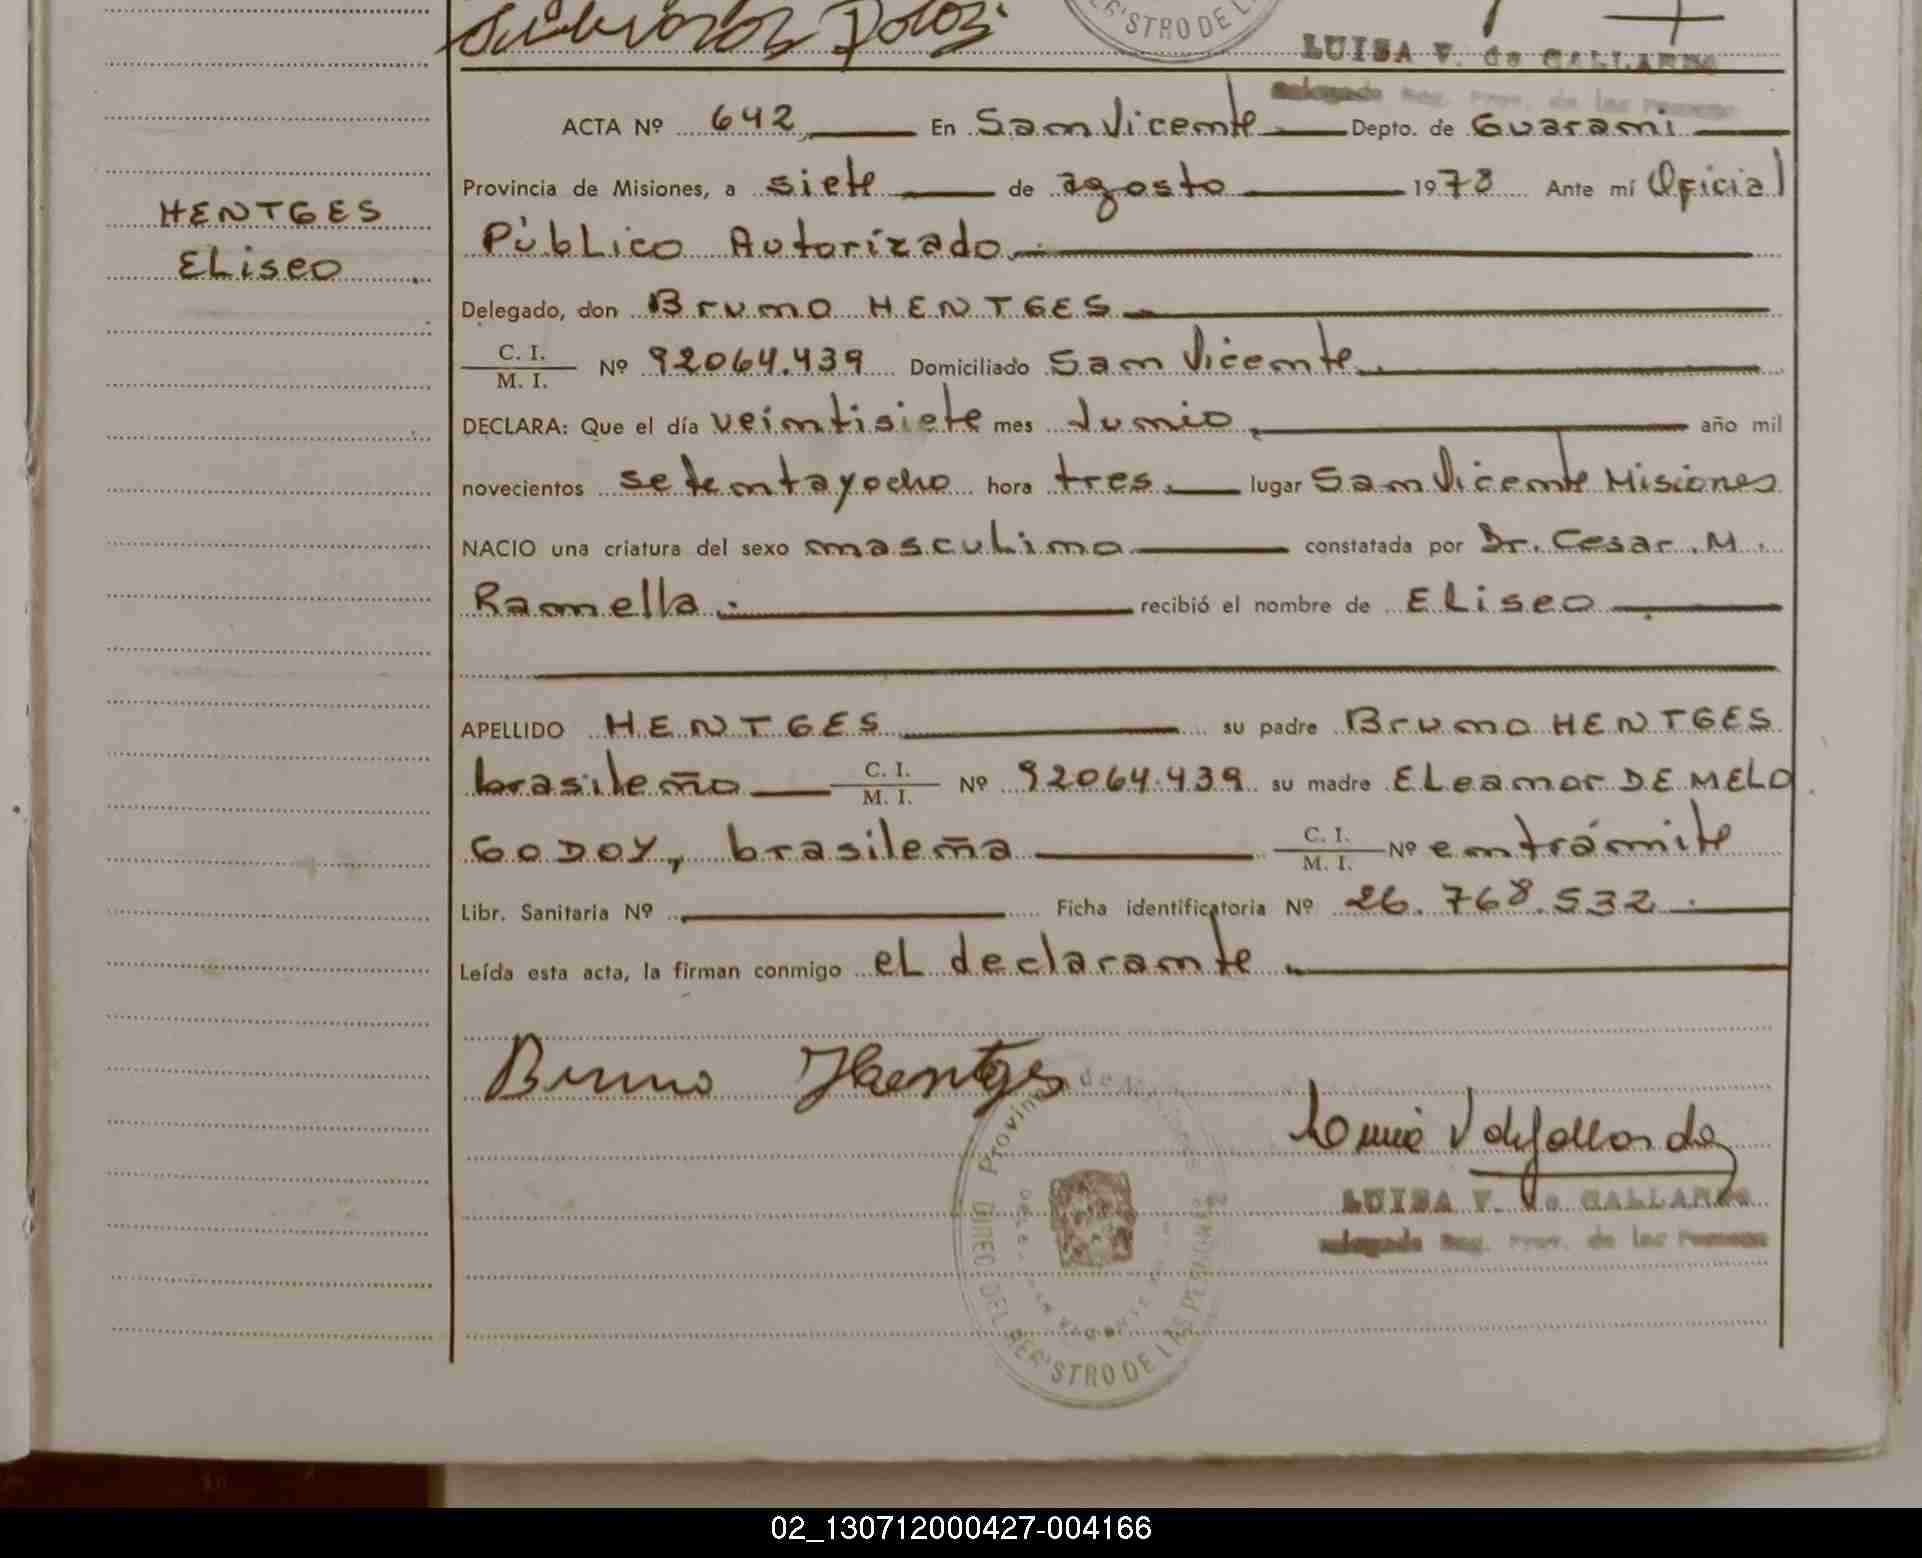 REGISTRO DE L
LUISA V. de GALLARDO
Delegada Reg. Prov. de las Personas
ACTA Nº 642 En San Vicente Depto. de Guarani
HENTGES
ELiseo
Provincia de Misiones, a siete de agosto 1978 Ante mí Oficial
Público Autorizado
Delegado, don Bruno HENTGES
C. I.
M. I. Nº 92064.439 Domiciliado San Vicente
DECLARA: Que el día veintisiete mes Junio año mil
novecientos setentayocho hora tres lugar San Vicente Misiones
NACIO una criatura del sexo masculino constatada por Dr. Cesar M.
Ramella recibió el nombre de ELiseo
APELLIDO HENTGES su padre Bruno HENTGES
brasileño C. I. M. I. Nº 92064.439 su madre ELeanor DE MELO
GODOY, brasileña C. I. M. I. Nº en trámite
Libr. Sanitaria Nº Ficha identificatoria Nº 26.768.532
Leída esta acta, la firman conmigo el declarante
Bruno Hentges
Provincia de Misiones
DIREC. DEL REGISTRO DE LAS PERSONAS
LUISA V. de GALLARDO
Delegada Reg. Prov. de las Personas
02_130712000427-004166